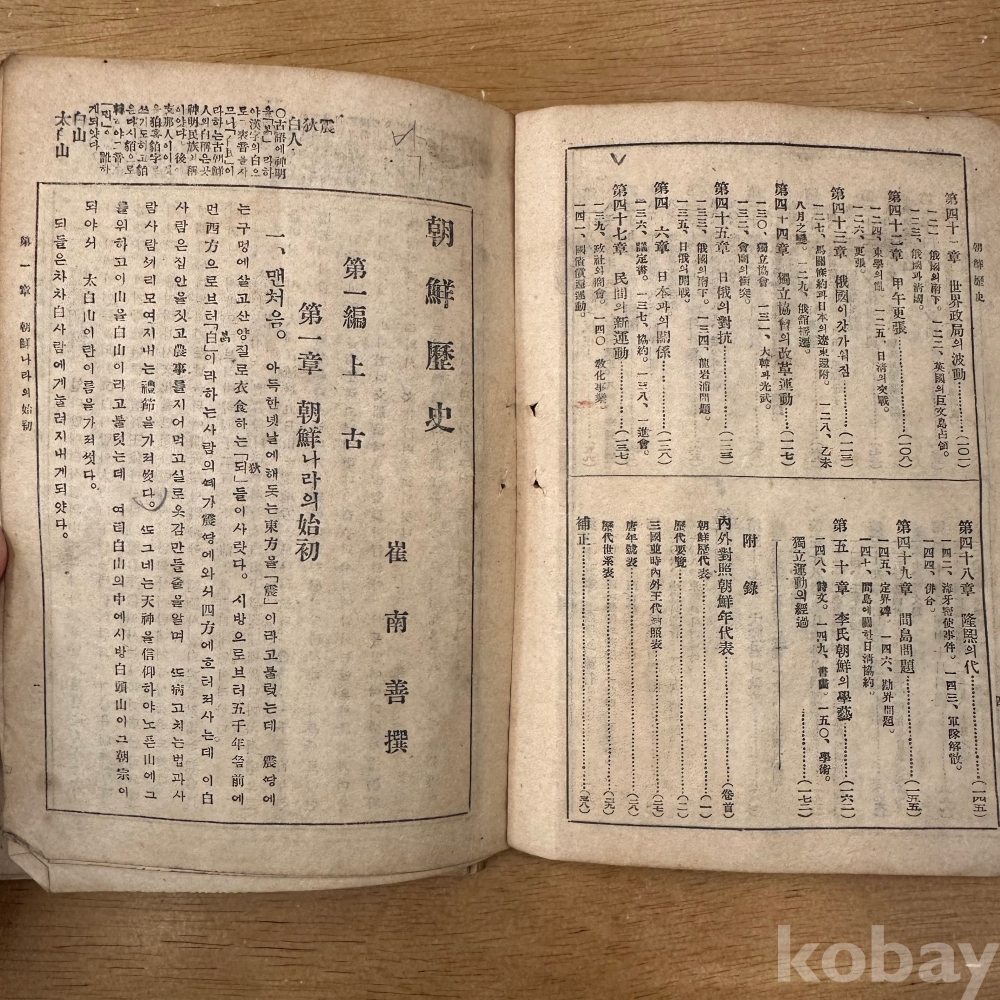 朝鮮歷史
第四十一章 世界政局의波動(一〇一)
俄國의南下。一二二、英國의巨文島占領。
一二三、俄國과淸國。
第四十二章 甲午更張(一〇八)
一二四、東學의亂。一二五、日淸의交戰。
一二六、更張。
第四十三章 俄國이갓가워짐(一一三)
一二七、馬關條約과日本의遼東還附。一二八、乙未
八月之變。一二九、俄館播遷。
第四十四章 獨立協會의改革運動
一三〇、獨立協會 一三一、大韓과光武。
一三二、會商의衝突。
第四十五章 日俄의對抗
一三三、俄國의南下。一三四、龍岩浦問題。
一三五、日俄의開戰。
第四十六章 日本과의關係
一三六、議定書。一三七、協約。一三八、一進會。
第四十七章 民間의新運動(一三七)
一三九、政社의商會。一四〇、敎化事業。
一四一、國債償還運動。
第四十八章 隆熙의代(一四五)
一四二、海牙密使事件。一四三、軍隊解散。
一四四、倂合。
第四十九章 間島問題(一五五)
一四五、定界碑。一四六、勘界問題。
一四七、間島에關한日淸協約。
第五十章 李氏朝鮮의學藝(一六二)
一四八、詩文。一四九、書畵。一五〇、學術。
獨立運動의經過(一七二)
附錄
內外對照朝鮮年代表(卷首)
朝鮮歷代表(一)
歷代要覽(二)
三國並時內外王代對照表(二七)
唐年號表(二八)
歷代世系表(二九)
補正(三八)
震
狄
白人
〇古語에神明
을「ᄇᆞᆰ」이라하
야漢字의白으
로 表音을사
므니
라하는古朝鮮
人의自稱은곳
神明民族의稱
이얏다 後에
支那人이이것
을狛혹貊字로
쓰기도하고貊
은다시貃으로
되얏다
白山
太白山
朝鮮歷史
崔南善撰
第一編 上古
第一章 朝鮮나라의始初
一、맨처음。 아득한녯날에해돗는東方을「震」이라고불럿는데 震ᄯᅡᆼ에
는구멍에살고산양질로衣食하는「되」들이사랏다。시방으로브터五千年쯤前에
먼西方으로브터「白」이라하는사람의ᄯᅦ가震ᄯᅡᆼ에와서四方에흐터져사는데 이白
사람은집안을짓고農事를지어먹고실로옷감만들줄을알며 ᄯᅩ病고치는법과사
람사람ᄭᅵ리모여지내는禮節을가졋다。ᄯᅩ그네는天神을信仰하야노픈山에그
를위하고이山을白山이라고불럿는데 여러白山의中에시방白頭山이그朝宗이
되야서 太白山이란이름을가젓섯다。
되들은차차白사람에게눌려지내게되얏다。
第一章 朝鮮나라의始初
一
kobay